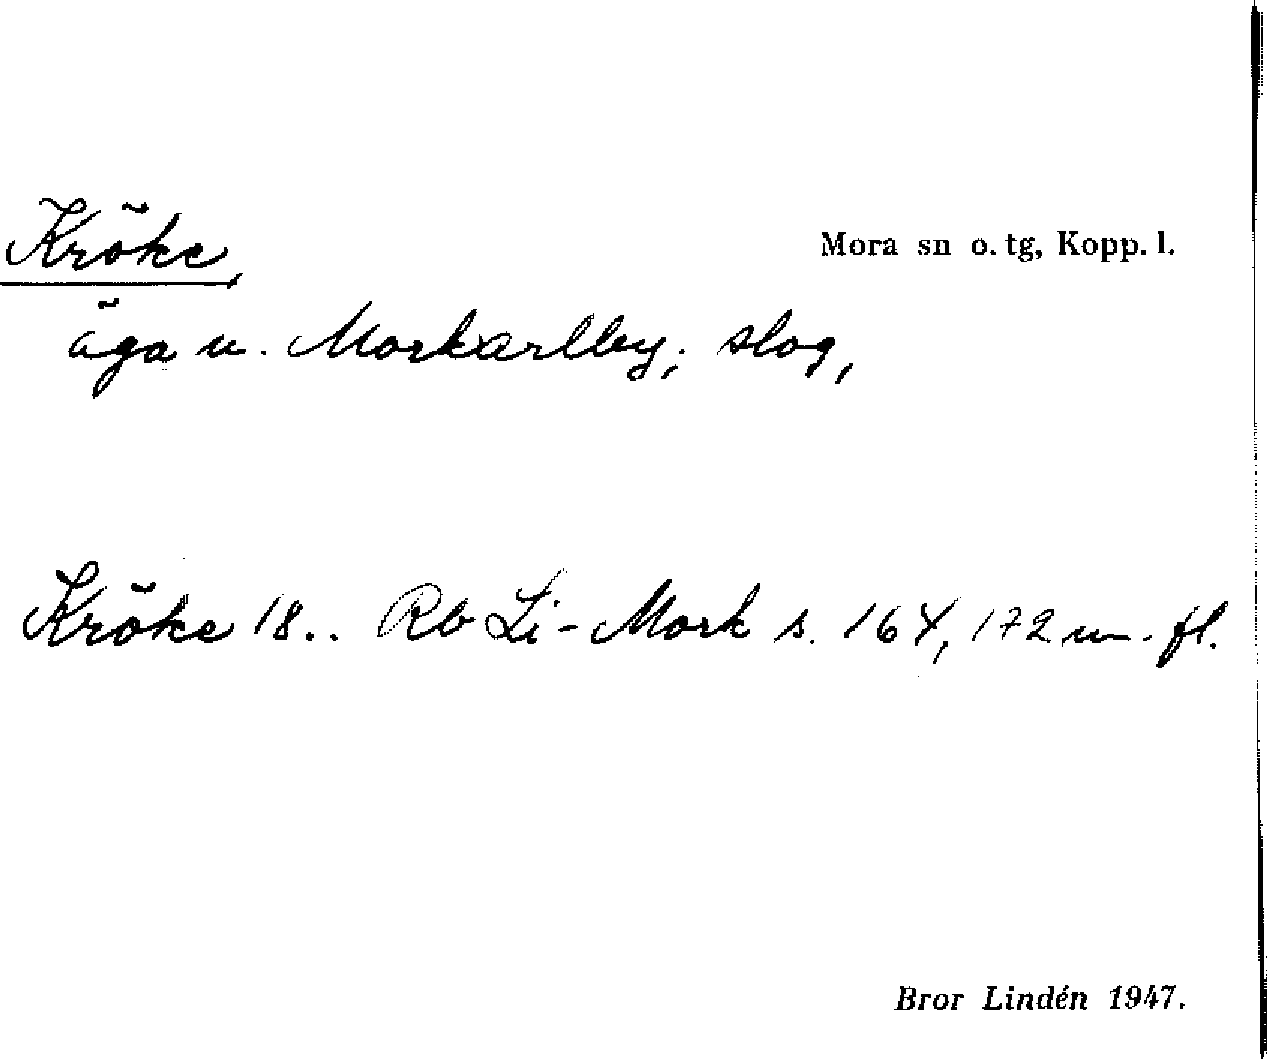 Kröke,
Mora sn o. tg, Kopp. l.
äga u. Morkarlby; slog,
Kröke 18.. Rb Li-Mork s. 164, 172 m. fl.
Bror Lindén 1947.